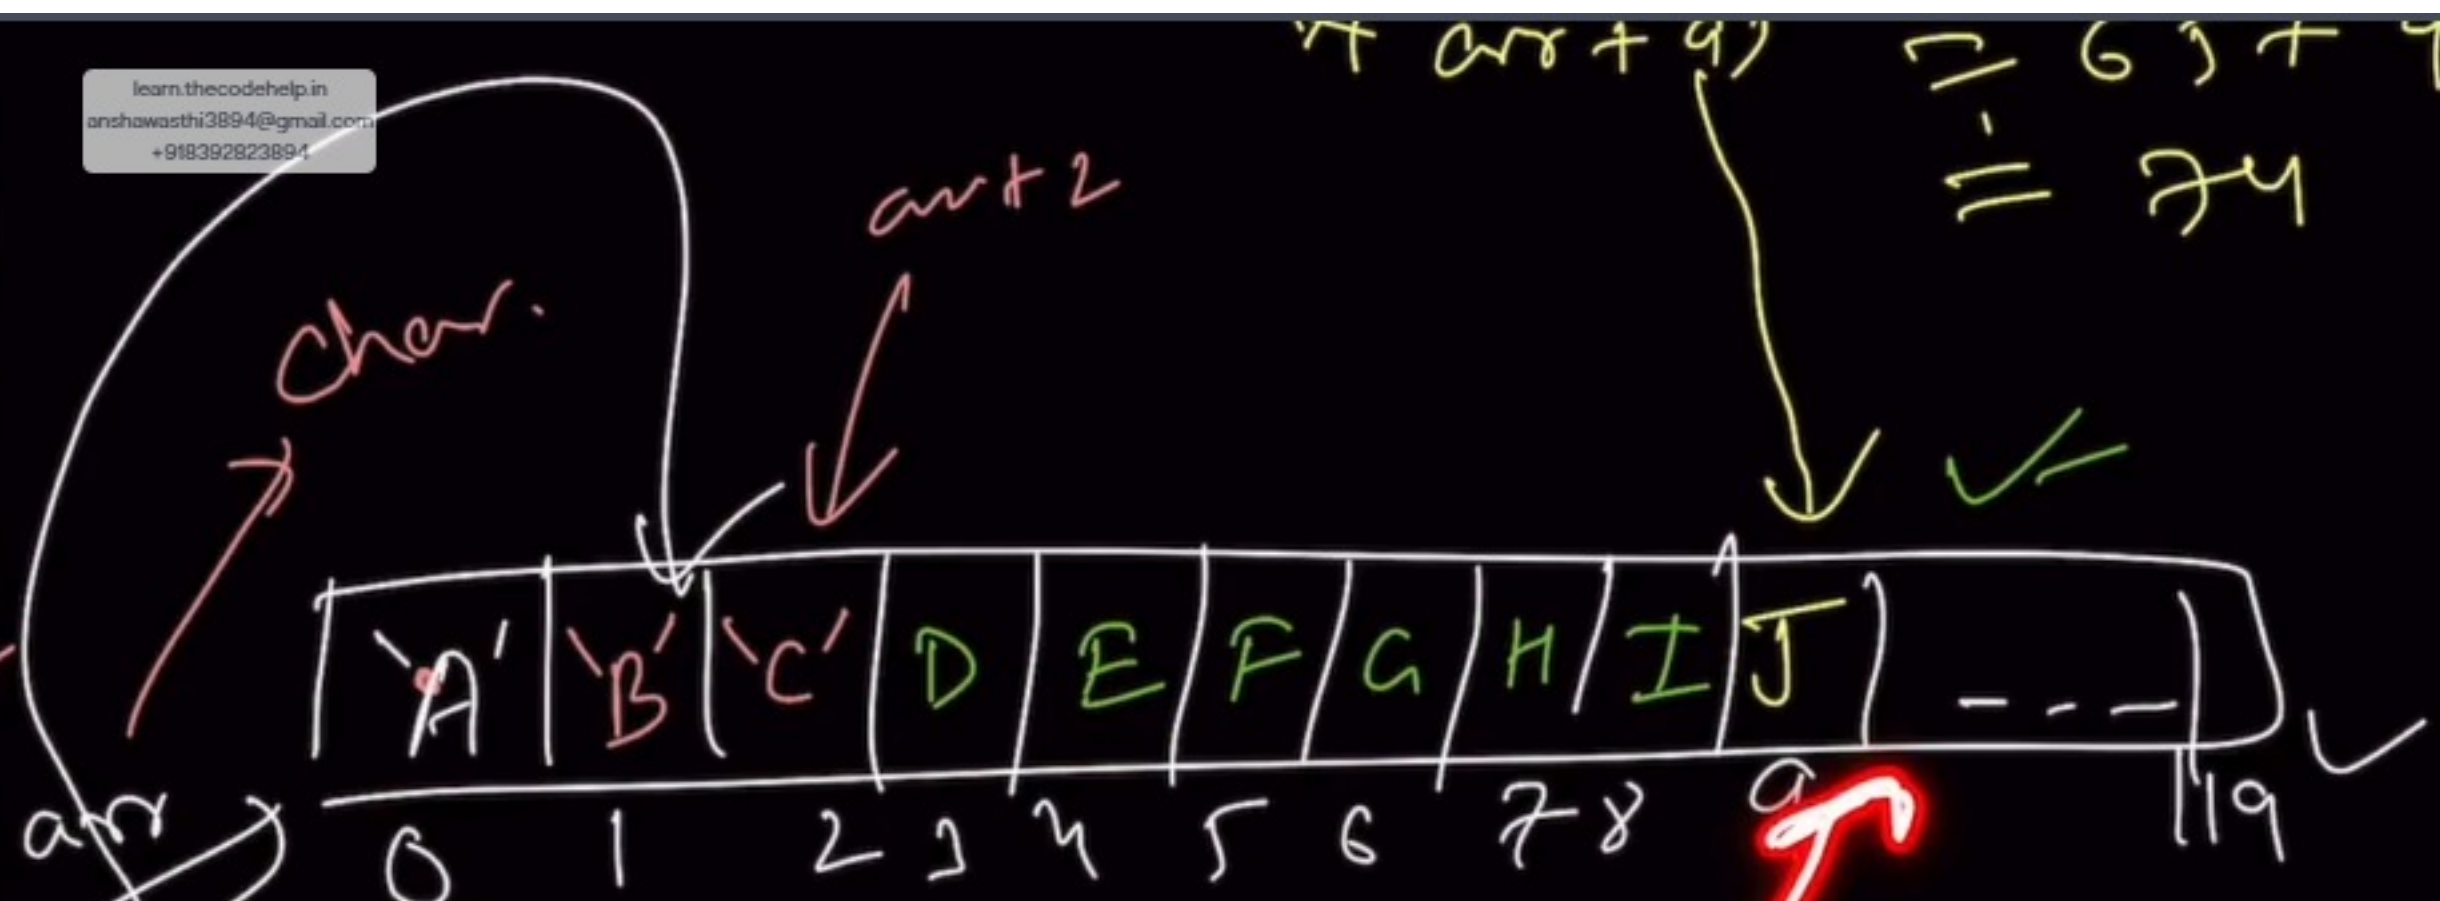 * arr + 9) = 65 + 9
learn.thecodehelp.in
anshawasthi3894@gmail.com
+918392823894
= 74
arr + 2
Char.
'A' 'B' 'C' D E F G H I J - - -
arr
0 1 2 3 4 5 6 7 8 9 19